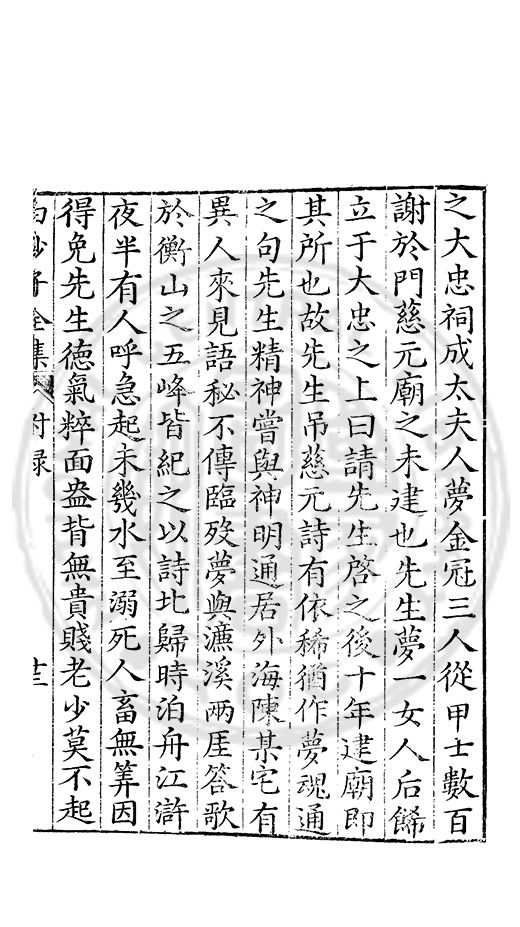 之大忠祠成太夫人夢金冠三人從甲士數百
謝於門慈元廟之未建也先生夢一女人后餙
立于大忠之上曰請先生啓之後十年建廟即
其所也故先生吊慈元詩有依稀猶作夢魂通
之句先生精神嘗與神明通居外海陳某宅有
異人來見語秘不傳臨歿夢與濂溪兩厓答歌
於衡山之五峰皆紀之以詩北歸時泊舟江滸
夜半有人呼急起未幾水至溺死人畜無筭因
得免先生德氣粹面盎背無貴賤老少莫不起
白沙子全集 附录 十三